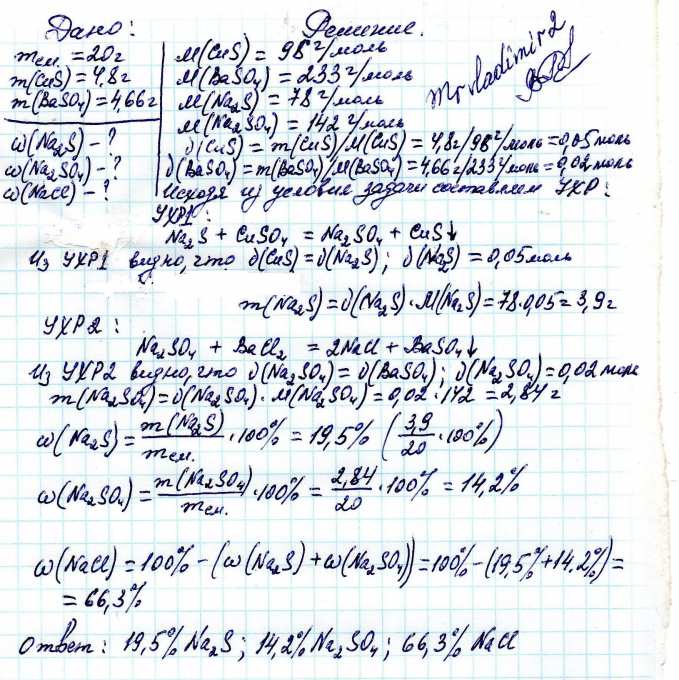 Дано:
Решение.
mсм. = 20г
m(CuS) = 4,8г
m(BaSO4) = 4,66г
ω(Na2S) – ?
ω(Na2SO4) – ?
ω(NaCl) – ?
M(CuS) = 96 г/моль
M(BaSO4) = 233 г/моль
M(Na2S) = 78 г/моль
M(Na2SO4) = 142 г/моль
Mr vladimir2
υ(CuS) = m(CuS)/M(CuS) = 4,8г/96 г/моль = 0,05 моль
υ(BaSO4) = m(BaSO4)/M(BaSO4) = 4,66г/233 г/моль = 0,02 моль
Исходя из условия задачи составляем УХР:
УХР1:
Na2S + CuSO4 = Na2SO4 + CuS↓
Из УХР1 видно, что υ(CuS) = υ(Na2S); υ(Na2S) = 0,05 моль
m(Na2S) = υ(Na2S)·M(Na2S) = 78·0,05 = 3,9 г
УХР2:
Na2SO4 + BaCl2 = 2NaCl + BaSO4↓
Из УХР2 видно, что υ(Na2SO4) = υ(BaSO4); υ(Na2SO4) = 0,02 моль
m(Na2SO4) = υ(Na2SO4)·M(Na2SO4) = 0,02·142 = 2,84 г
ω(Na2S) = m(Na2S)/mсм.·100% = 19,5% (3,9/20·100%)
ω(Na2SO4) = m(Na2SO4)/mсм.·100% = 2,84/20·100% = 14,2%
ω(NaCl) = 100% – (ω(Na2S) + ω(Na2SO4)) = 100% – (19,5% + 14,2%) =
= 66,3%
Ответ: 19,5% Na2S; 14,2% Na2SO4; 66,3% NaCl